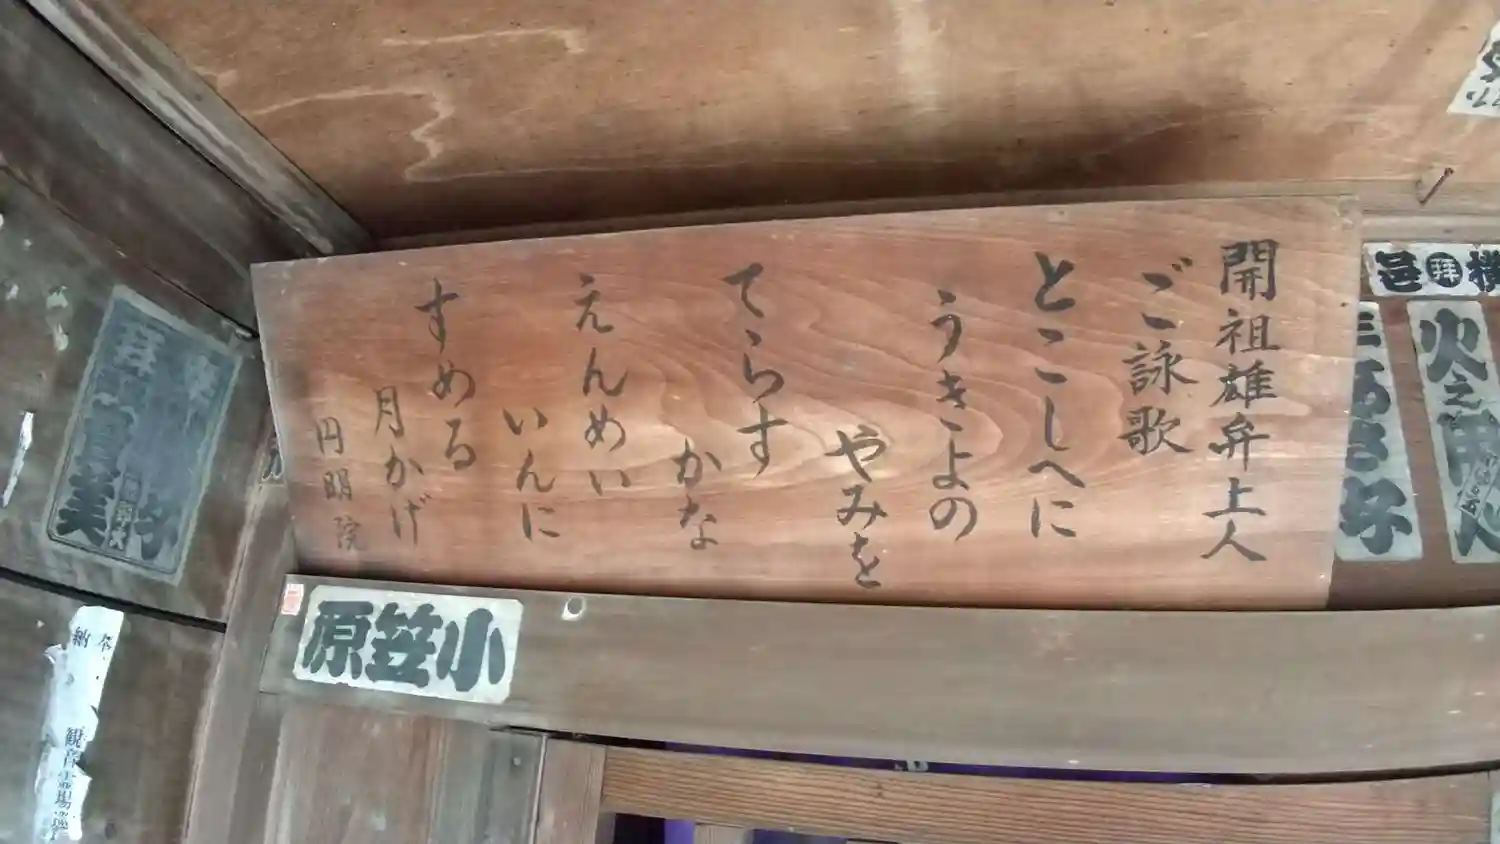 開祖雄弁上人
ご詠歌
とこしへに
うきよの
やみを
てらす
かな
えんめい
いんに
すめる
月かげ
円明院
小笠原
火之
観音霊場巡